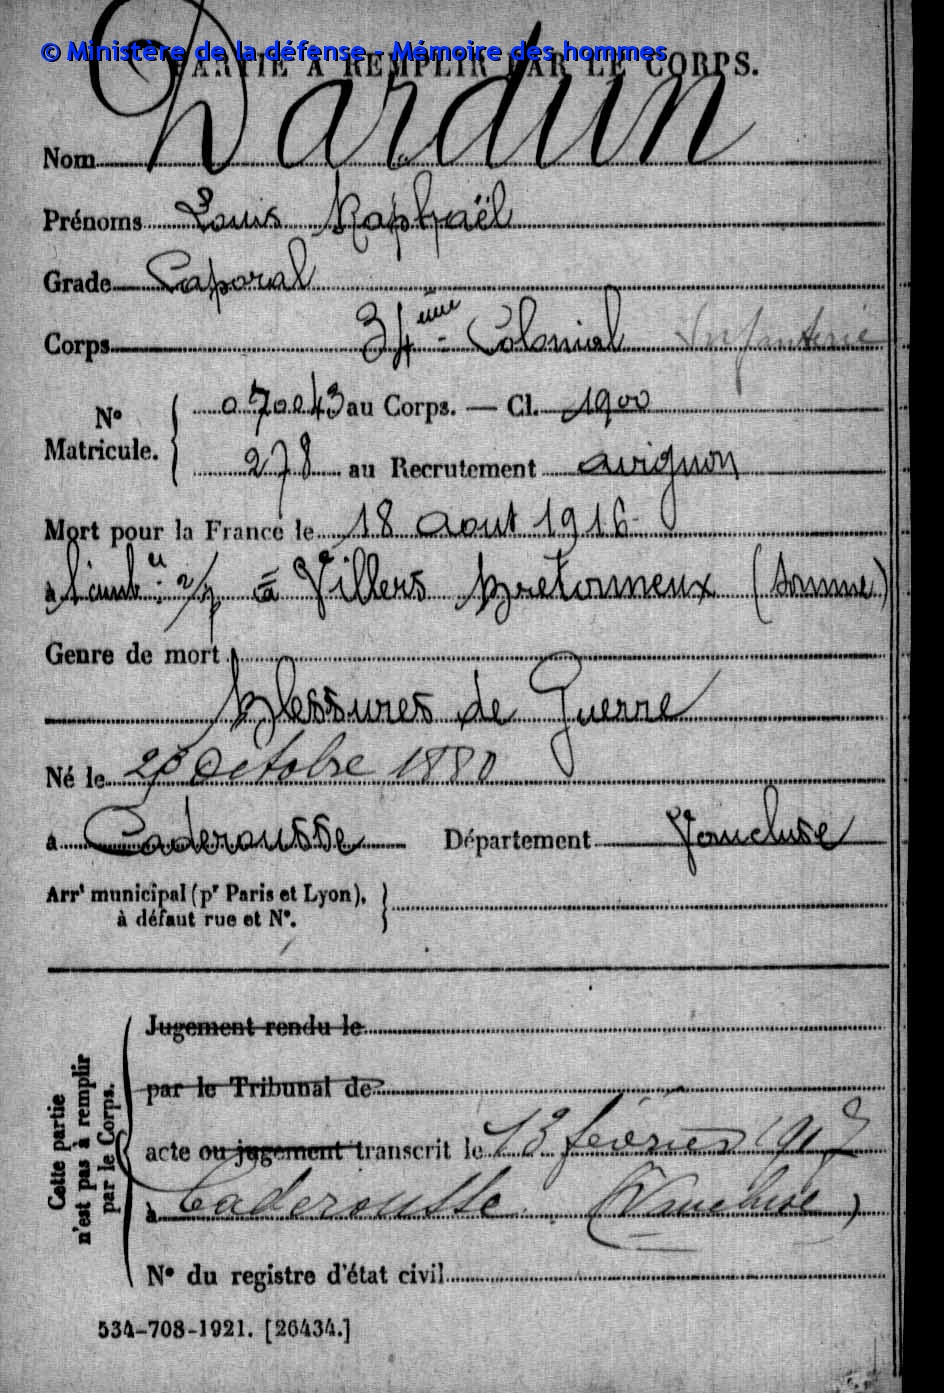 © Ministère de la défense - Mémoire des hommes
PARTIE À REMPLIR PAR LE CORPS.
Nom Dardun
Prénoms Louis Raphaël
Grade Caporal
Corps 34ème Colonial Infanterie
N° Matricule. 070043 au Corps. — Cl. 1900
278 au Recrutement Avignon
Mort pour la France le 18 Aout 1916
à l'amb 2/7 à Villers Bretonneux (Somme)
Genre de mort
Blessures de Guerre
Né le Octobre 1880
à Caderousse Département Vaucluse
Arrt municipal (pr Paris et Lyon),
à défaut rue et N°.
Cette partie
n'est pas à remplir
par le Corps.
Jugement rendu le
par le Tribunal de
acte ou jugement transcrit le 13 février 1917
à Caderousse (Vaucluse)
N° du registre d'état civil
534-708-1921. [26434.]